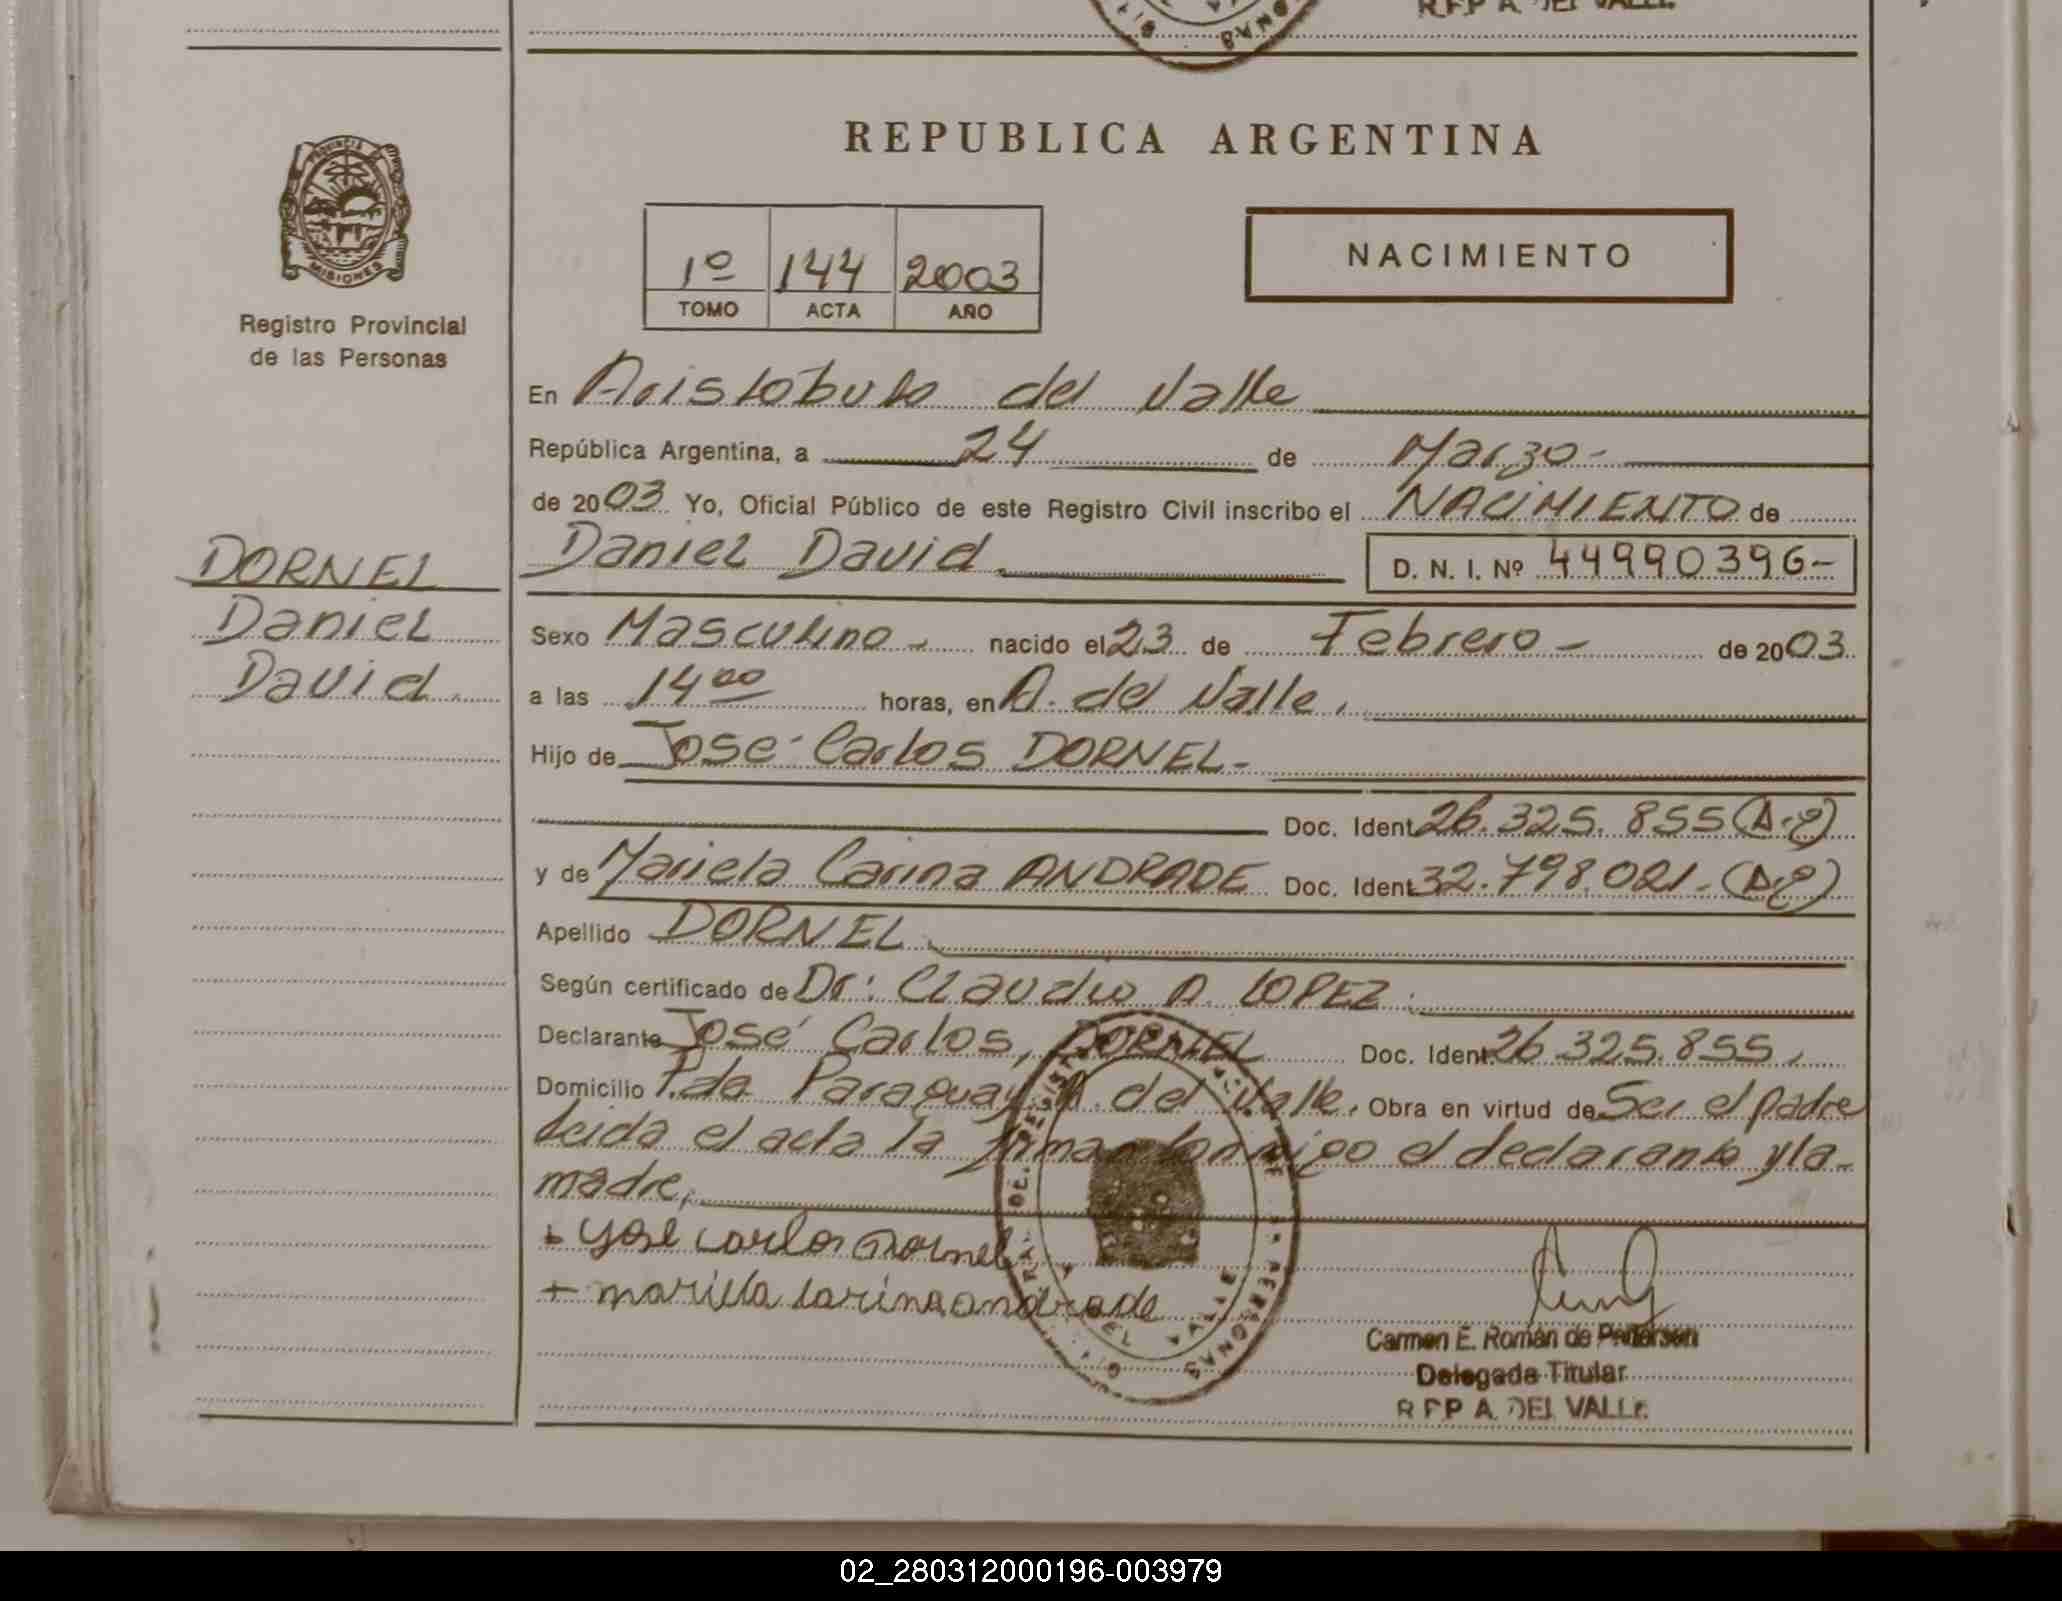 R.F.P A. DEL VALLE
REPUBLICA ARGENTINA
PROVINCIA DE
MISIONES
Registro Provincial
de las Personas
1º 144 2003
TOMO ACTA AÑO
NACIMIENTO
En Aristóbulo del Valle
República Argentina, a 24 de Marzo-
de 2003 Yo, Oficial Público de este Registro Civil inscribo el NACIMIENTO de
Daniel David D. N. I. Nº 44990396-
DORNEL
Daniel
David
Sexo Masculino - nacido el 23 de Febrero - de 2003
a las 14 00 horas, en A. del Valle.
Hijo de José Carlos DORNEL-
Doc. Ident. 26.325.855 (A.g)
y de Mariela Carina ANDRADE Doc. Ident. 32.798.021.(A.g)
Apellido DORNEL
Según certificado de Dr: Claudio A. LOPEZ
Declarante José Carlos, DORNEL Doc. Ident. 26.325.855.
Domicilio P.da Paraguay A. del Valle. Obra en virtud de Ser el padre
Leida el acta la firman conmigo el declarante y la
madre.
+ Yose carlos Dornel
+ mariela carina andrade
Carmen E. Román de Pedersen
Delegada Titular
R F P A. DEL VALLE
02_280312000196-003979